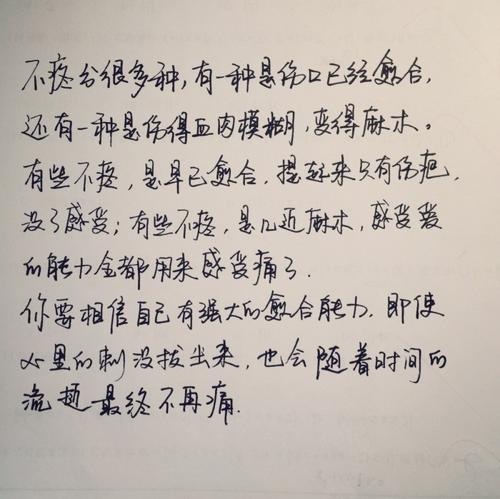 不疼分很多种，有一种是伤口已经愈合，
还有一种是伤得血肉模糊，变得麻木。
有些不疼，是早已愈合，提起来只有伤疤，
没了感受；有些不疼，是几近麻木，感受爱
的能力全都用来感受痛了.
你要相信自己有强大的愈合能力，即使
心里的刺没拔出来，也会随着时间的
流逝最终不再痛.